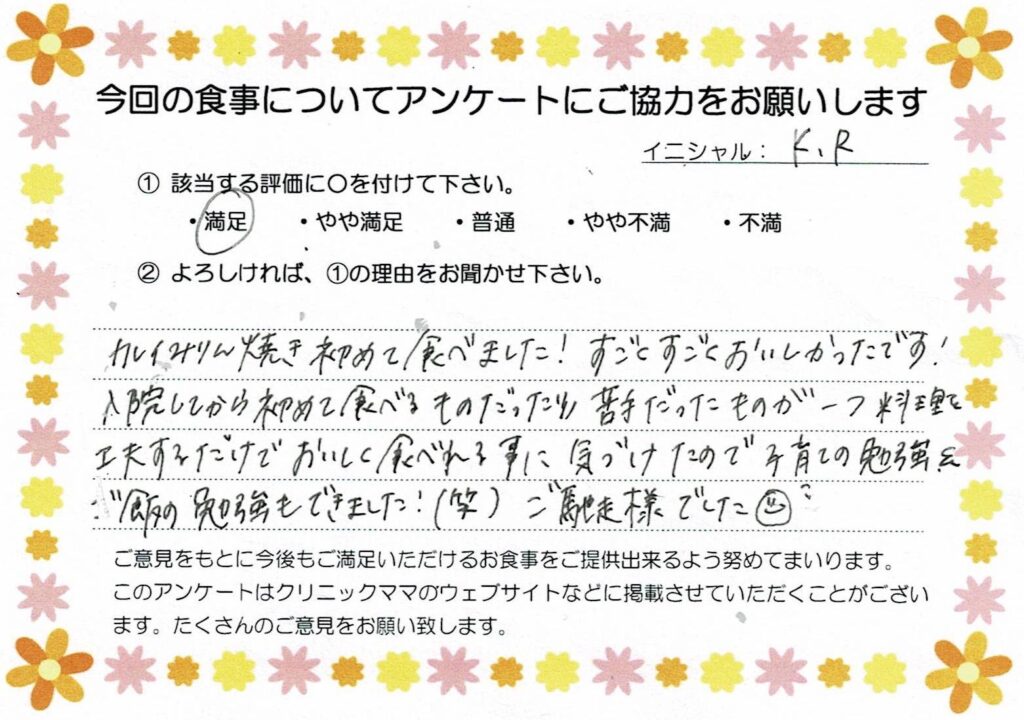 今回の食事についてアンケートにご協力をお願いします
イニシャル： K、R
① 該当する評価に〇を付けて下さい。
・満足 ・やや満足 ・普通 ・やや不満 ・不満
② よろしければ、①の理由をお聞かせ下さい。
カレイみりん焼き初めて食べました！すごくすごくおいしかったです！
入院してから初めて食べるものだったり苦手だったものが一つ料理を
工夫するだけでおいしく食べれる事に気づけたので子育ての勉強と
ご飯の勉強もできました！（笑）ご馳走様でした
ご意見をもとに今後もご満足いただけるお食事をご提供出来るよう努めてまいります。
このアンケートはクリニックママのウェブサイトなどに掲載させていただくことがござい
ます。たくさんのご意見をお願い致します。